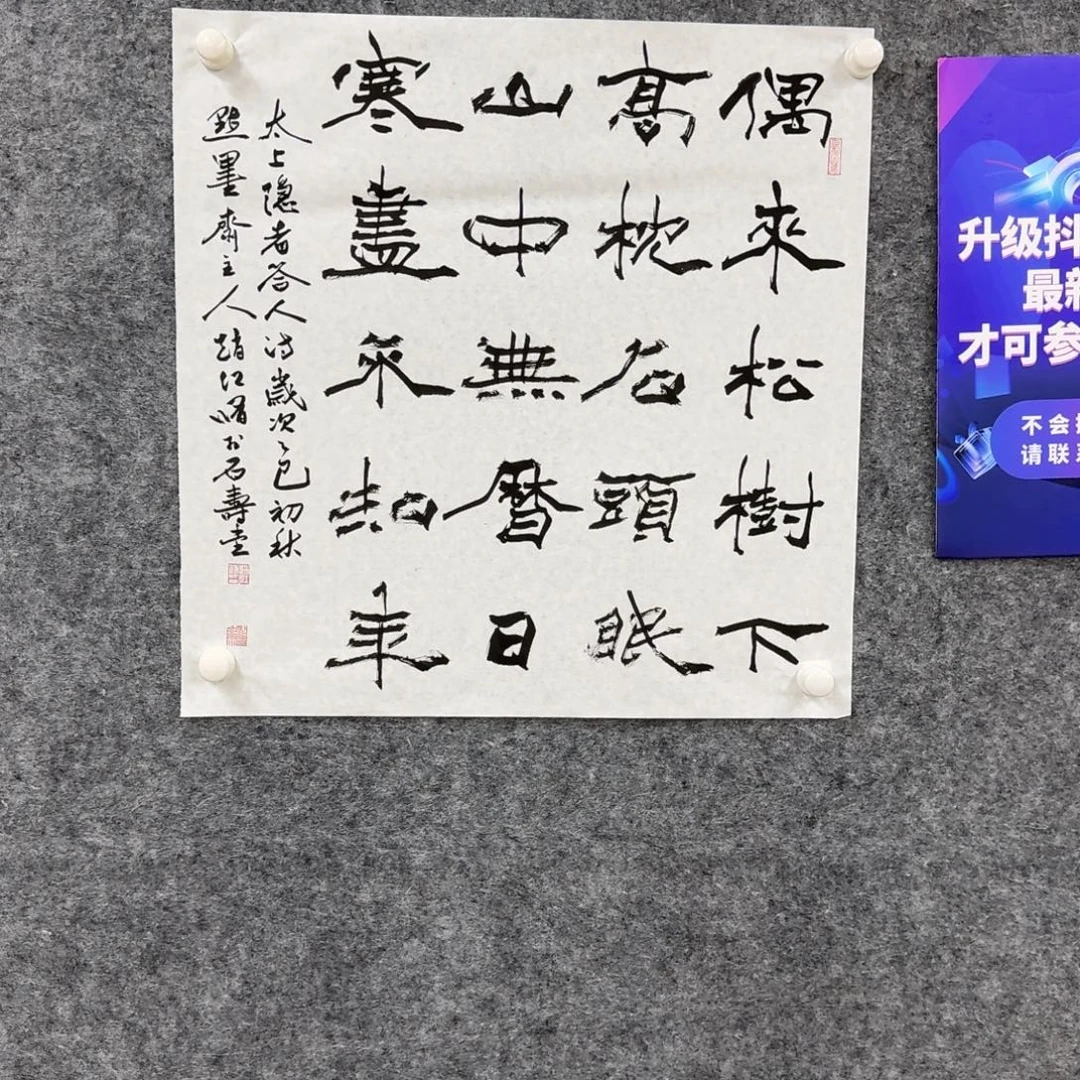 偶來松樹下
高枕石頭眠
山中無曆日
寒盡不知年
太上隐者答人诗歲次乙巳初秋
點墨齋主人趙江於石壽堂
升级抖
最新
才可参
不会
请联系